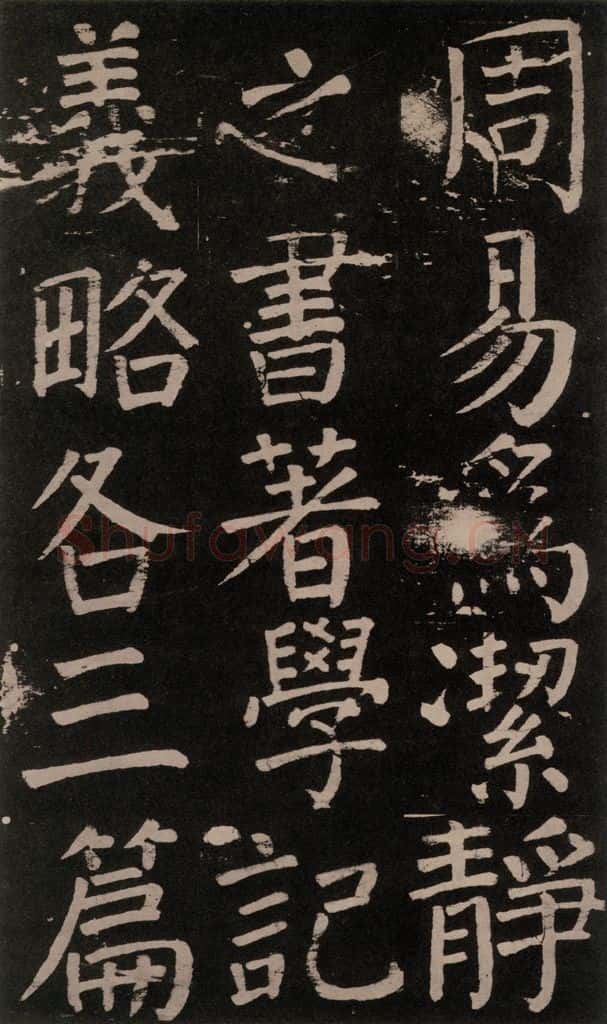 周易爲潔靜
之書著學記
義略各三篇
Shufawang.CN